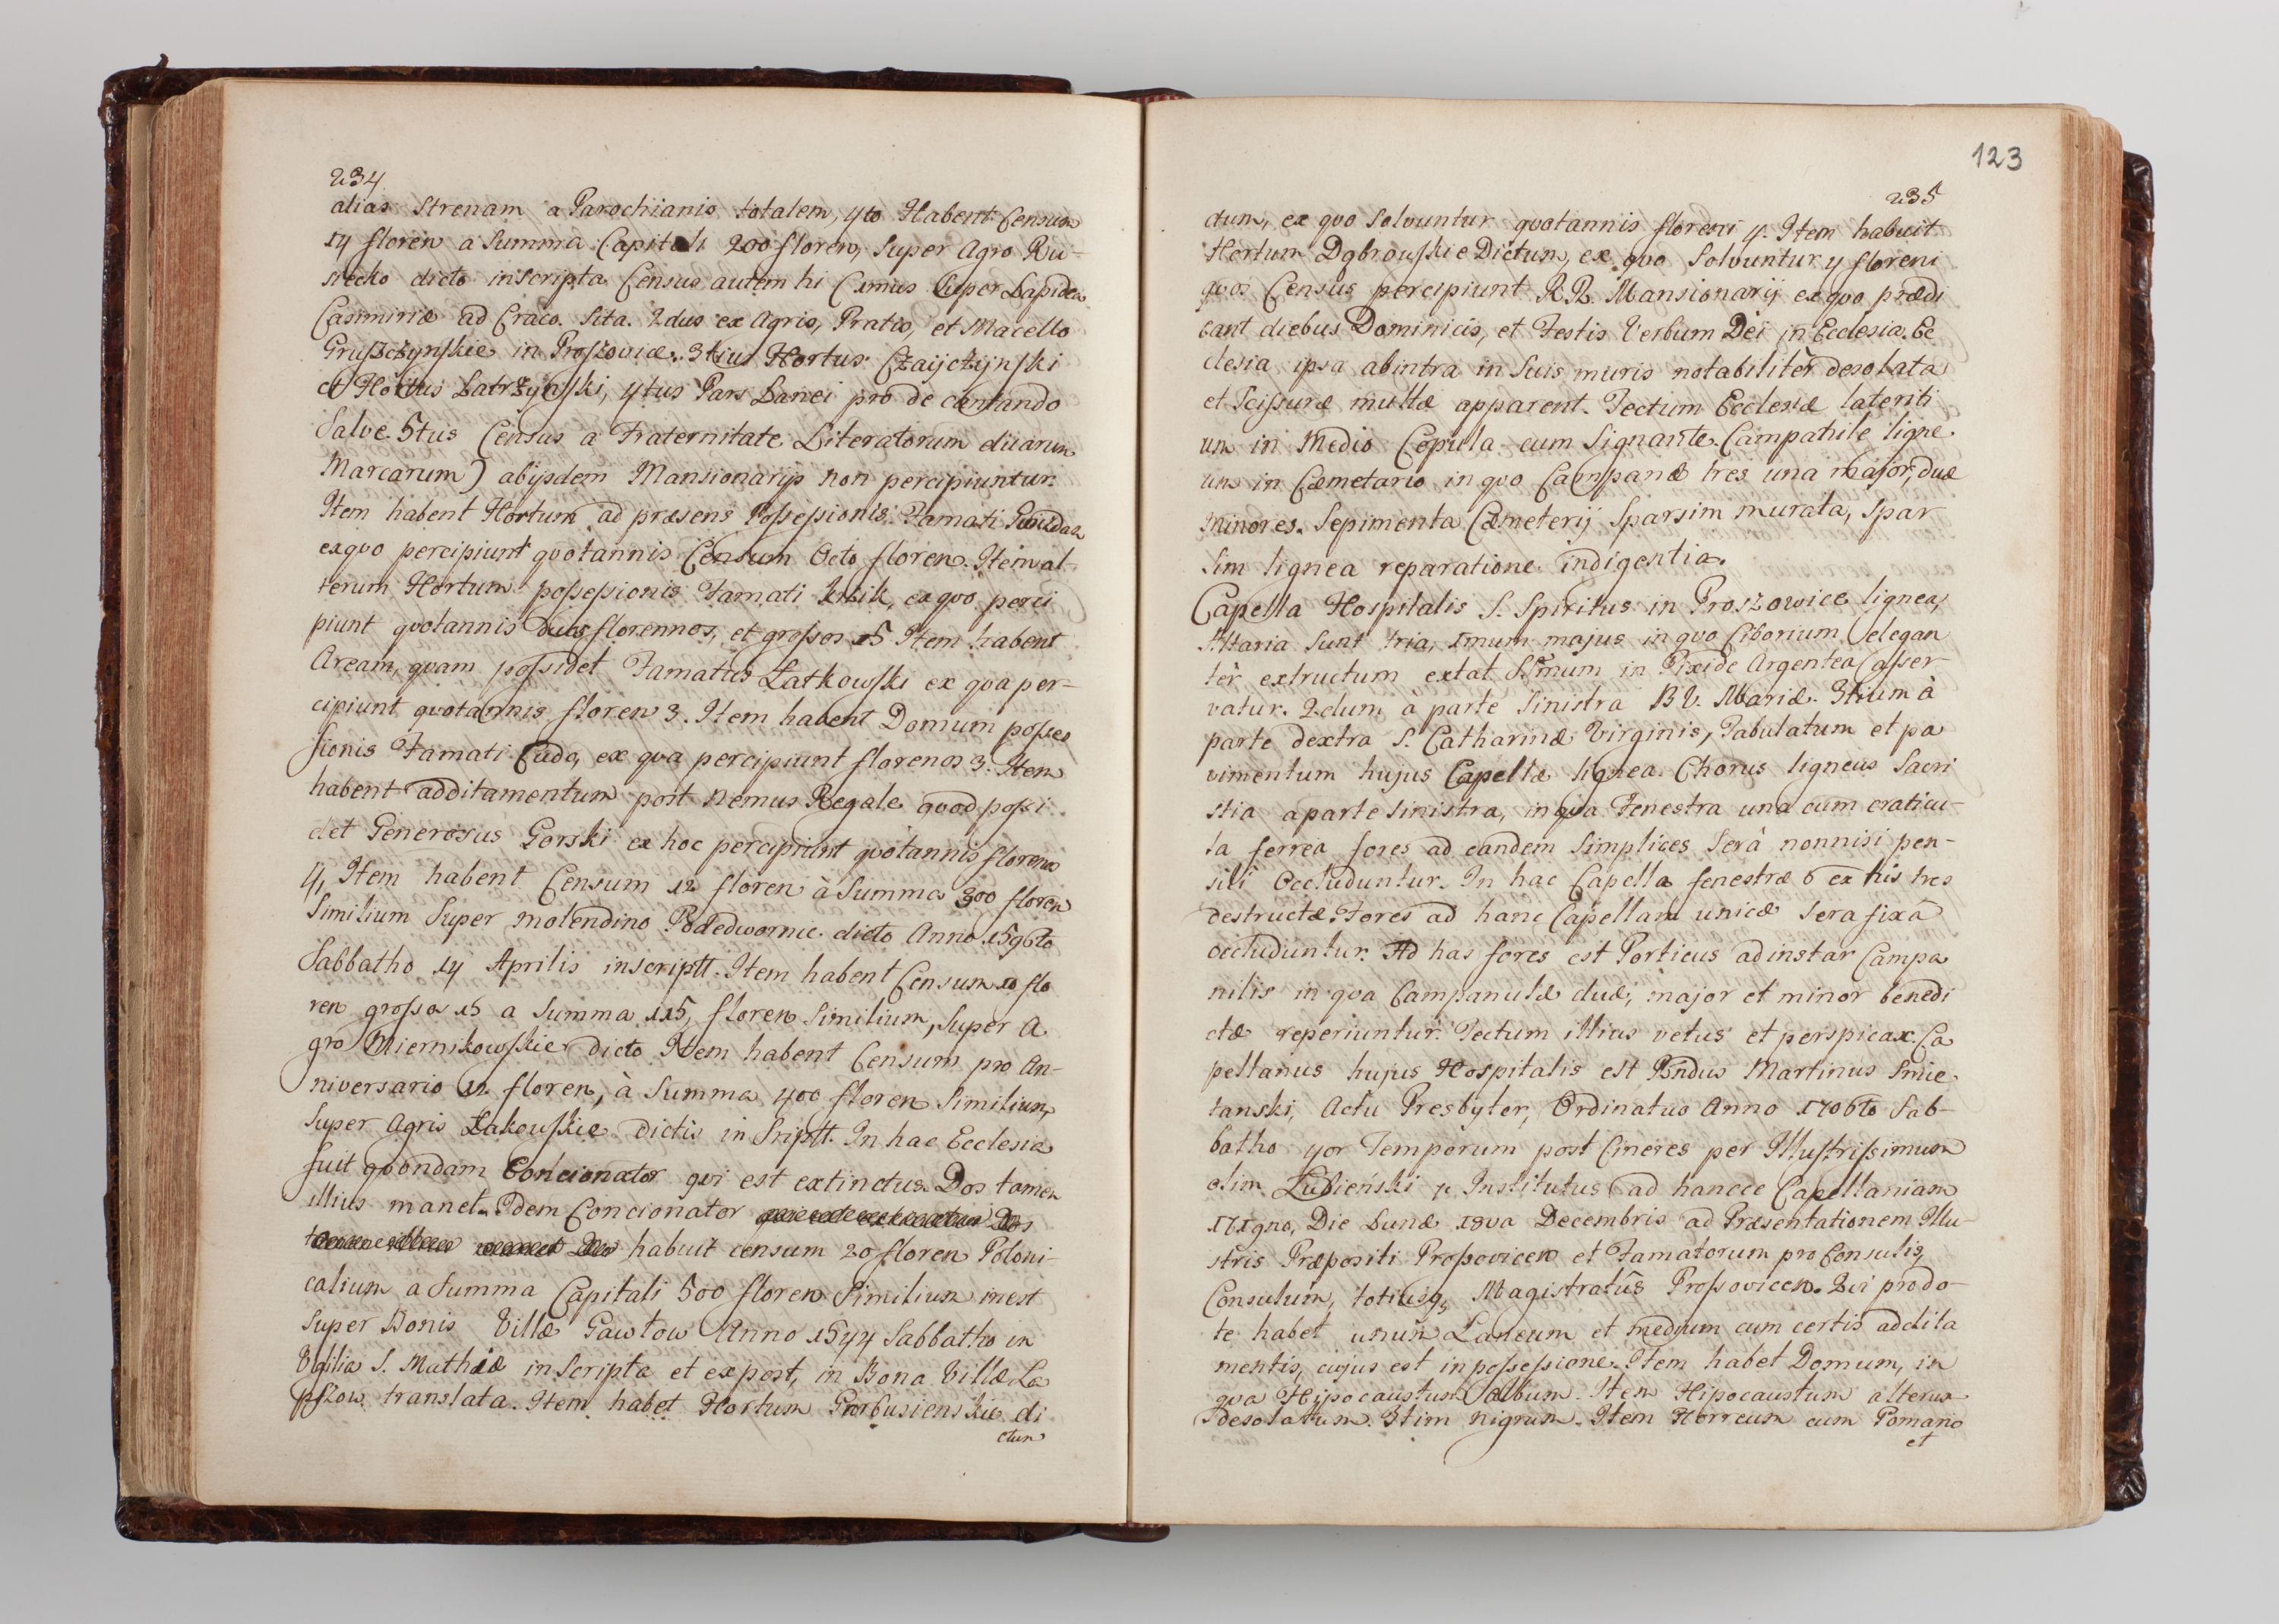 234
alias Strenam a Parochianis totalem, 4to Habent Censum
14 floren a Summa Capitali 200 floren, Super Agro Ru-
siecko dicto inscripta Census autem hi (1mus Super Lapidea
Casimiriæ ad Craco. Sita. 2dus ex Agris, Pratis, et Macello
Gruszczynskie in Proszovice. 3tius Hortus Czaijczijnski
et Hortus Latrzynski, 4tus Pars Lanei pro de cantando
Salve 5tus Census a Fraternitate Literatorum duarum
Marcarum) abijsdem Mansionarijs non percipiuntur.
Item habent Hortum ad præsens Possessionis Famati
exquo percipiunt quotannis Censum Octo floren. Item al-
terum Hortum possessionis Famati Krzik, ex quo perci
piunt quotannis duos florennos, et grossos 15 Item habent
Aream, quam possidet Famatus Latkowski ex qua per-
cipiunt quotannis floren 3. Item habent Domum posses
sionis Famati Cudo, ex qua percipiunt florenos 3. Item
habent additamentum post Nemus Regale quod possi
det Generosus Gorski ex hoc percipiunt quotannis florenos
4, Item habent Censum 12 floren à Summa 300 floren
Similium Super molendino Podedwornie dicto Anno 1596to
Sabbatho 14 Aprilis inscriptt. Item habent Censum 10 flo
ren grossos 15 a Summa 115, floren Similium, Super A
gro Miernikowskie dicto Item habent Censum pro An-
niversario 12 floren, à Summa 400 floren Similium,
Super Agris Łakowskie dictis in Sriptt. In hac Ecclesia
fuit quondam Concionator qui est extinctus. Dos tamen
illius manet. Idem Concionator
habuit censum 20 floren Poloni-
calium a Summa Capitali 500 floren Similium inest
Super Bonis Villæ Gawłow Anno 1544 Sabbatho in
Vigilia S. Mathiæ inscripta et expost, in Bona Villæ Ła
pszow translata. Item habet Hortum Garbusienskie di
ctum
123
235
dum, ex quo Solvuntur quotannis floreni 4. Item habuit
Hortum Dąbrowskie Dictum, ex quo Solvuntur 4 floreni
quos Census percipiunt RR. Mansionarij ex quo prædi
cant diebus Dominicis, et Festis Verbum Dei in Ecclesia. Ec
clesia ipsa abintra in Suis muris notabilitèr desolata
et Scissuræ multæ apparent. Tectum Ecclesiæ lateriti
um in Medio Copula cum Signante. Campanile ligne
um in Cæmetario in quo Campanæ tres una major, duæ
Minores. Sepimenta Cæmeterij Sparsim murata, Spar
Sim lignea reparatione indigentia.
Capella Hospitalis S. Spiritus in Proszowice lignea,
Altaria Sunt tria, 1mum majus in quo Ciborium elegan
tèr extructum extat SSmum in Pixide Argentea asser-
vatur. 2dum à parte Sinistra B V. Mariæ. 3tium à
parte dextra S. Catharinæ Virginis, Tabulatum et pa
vimentum hujus Capellæ lignea. Chorus ligneus Sacri
stia aparte sinistra, in qua Fenestra una cum craticu-
la ferrea fores ad eandem Simplices Serà nonnisi pen-
sili Occluduntur. In hac Capella fenestræ 6 ex his tres
destructæ. Fores ad hanc Capellam unicæ Sera fixâ
occluduntur. Ad has fores est Porticus adinstar Campa
nilis in qua Campanulæ duæ, major et minor benedi
ctæ reperiuntur. Tectum illius vetus et perspicax. Ca
pellanus hujus Hospitalis est Rndus Martinus Smie
tanski, Actu Presbyter, Ordinatus Anno 1706to Sab-
batho 4or Temporum post Cineres per Illustrissimum
olim Łubieński Institutus ad hancce Capellaniam
1719no, Die Lunæ 18va Decembris ad Præsentationem Illu-
stris Præpositi Prossovicen et Famatorum pro Consulis,
Consulum, totiusq, Magistratûs Prossovicen. Qui prodo-
te habet unum Laneum et medium cum certis addita
mentis, cujus est in possessione. Item habet Domum, in
qua Hypocaustum album. Item Hipocaustum alterum
desolatum. 3tim nigrum. Item Horreum cum Pomario
et